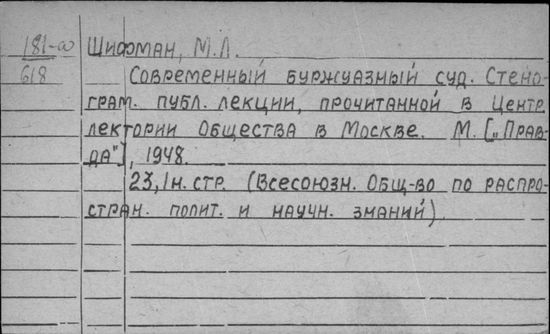 181-ю Шифман, М.Л.
618 Современный буржуазный суд. Стено-
грам. публ. лекции, прочитанной в Центр.
лектории Общества в Москве. М. [„Прав-
да"], 1948.
23, 1 н. стр. (Всесоюзн. Общ-во по распро-
стран. полит. и научн. знаний).